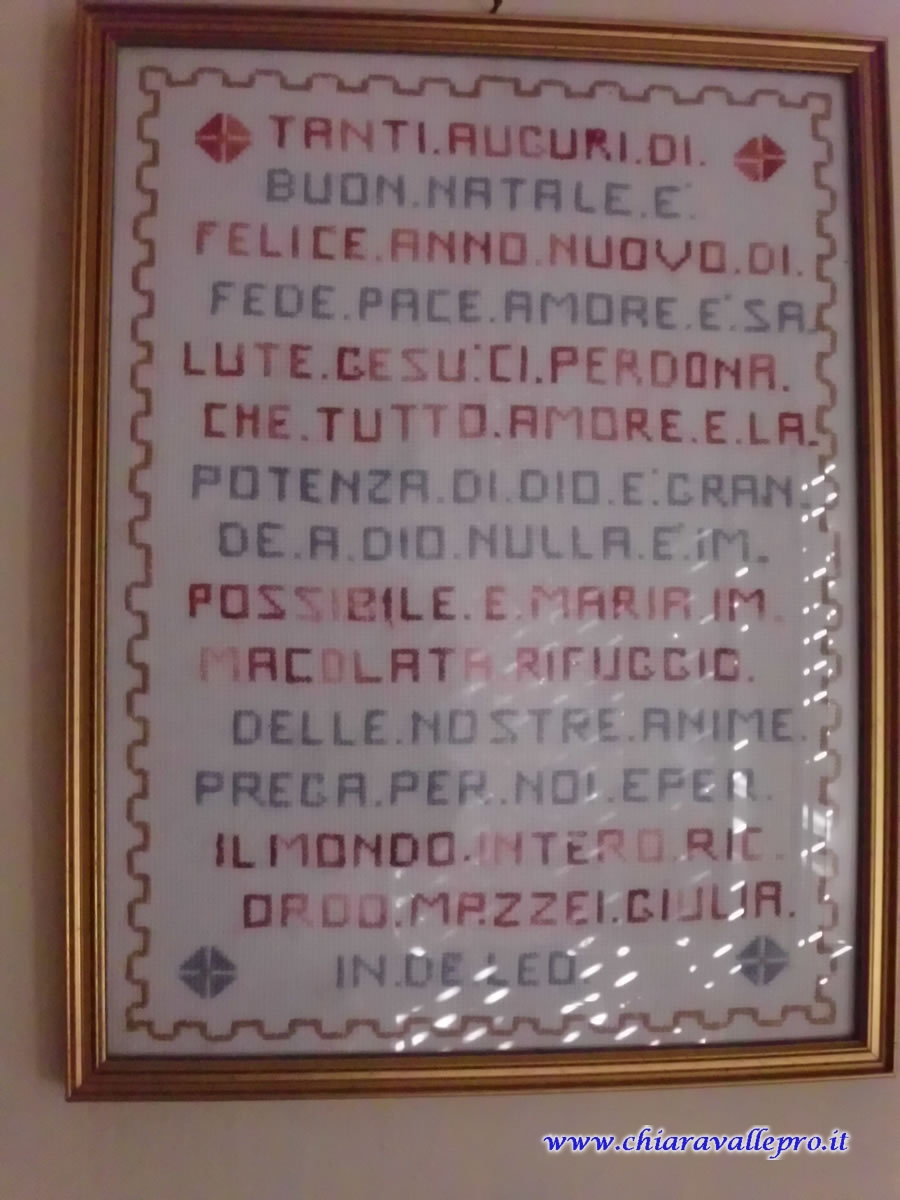 TANTI.AUGURI.DI.
BUON.NATALE.E'.
FELICE.ANNO.NUOVO.DI.
FEDE.PACE.AMORE.E'.SA.
LUTE.GESU'.CI.PERDONA.
CHE.TUTTO.AMORE.E.LA.
POTENZA.DI.DIO.E'.GRAN.
DE.A.DIO.NULLA.E'.IM.
POSSIBILE.E.MARIA.IM.
MACOLATA.RIFUGGIO.
DELLE.NOSTRE.ANIME.
PREGA.PER.NOI.EPER.
IL MONDO.INTERO.RIC.
ORDO.MAZZEI.GIULIA.
IN.DE.LEO.
www.chiaravallepro.it